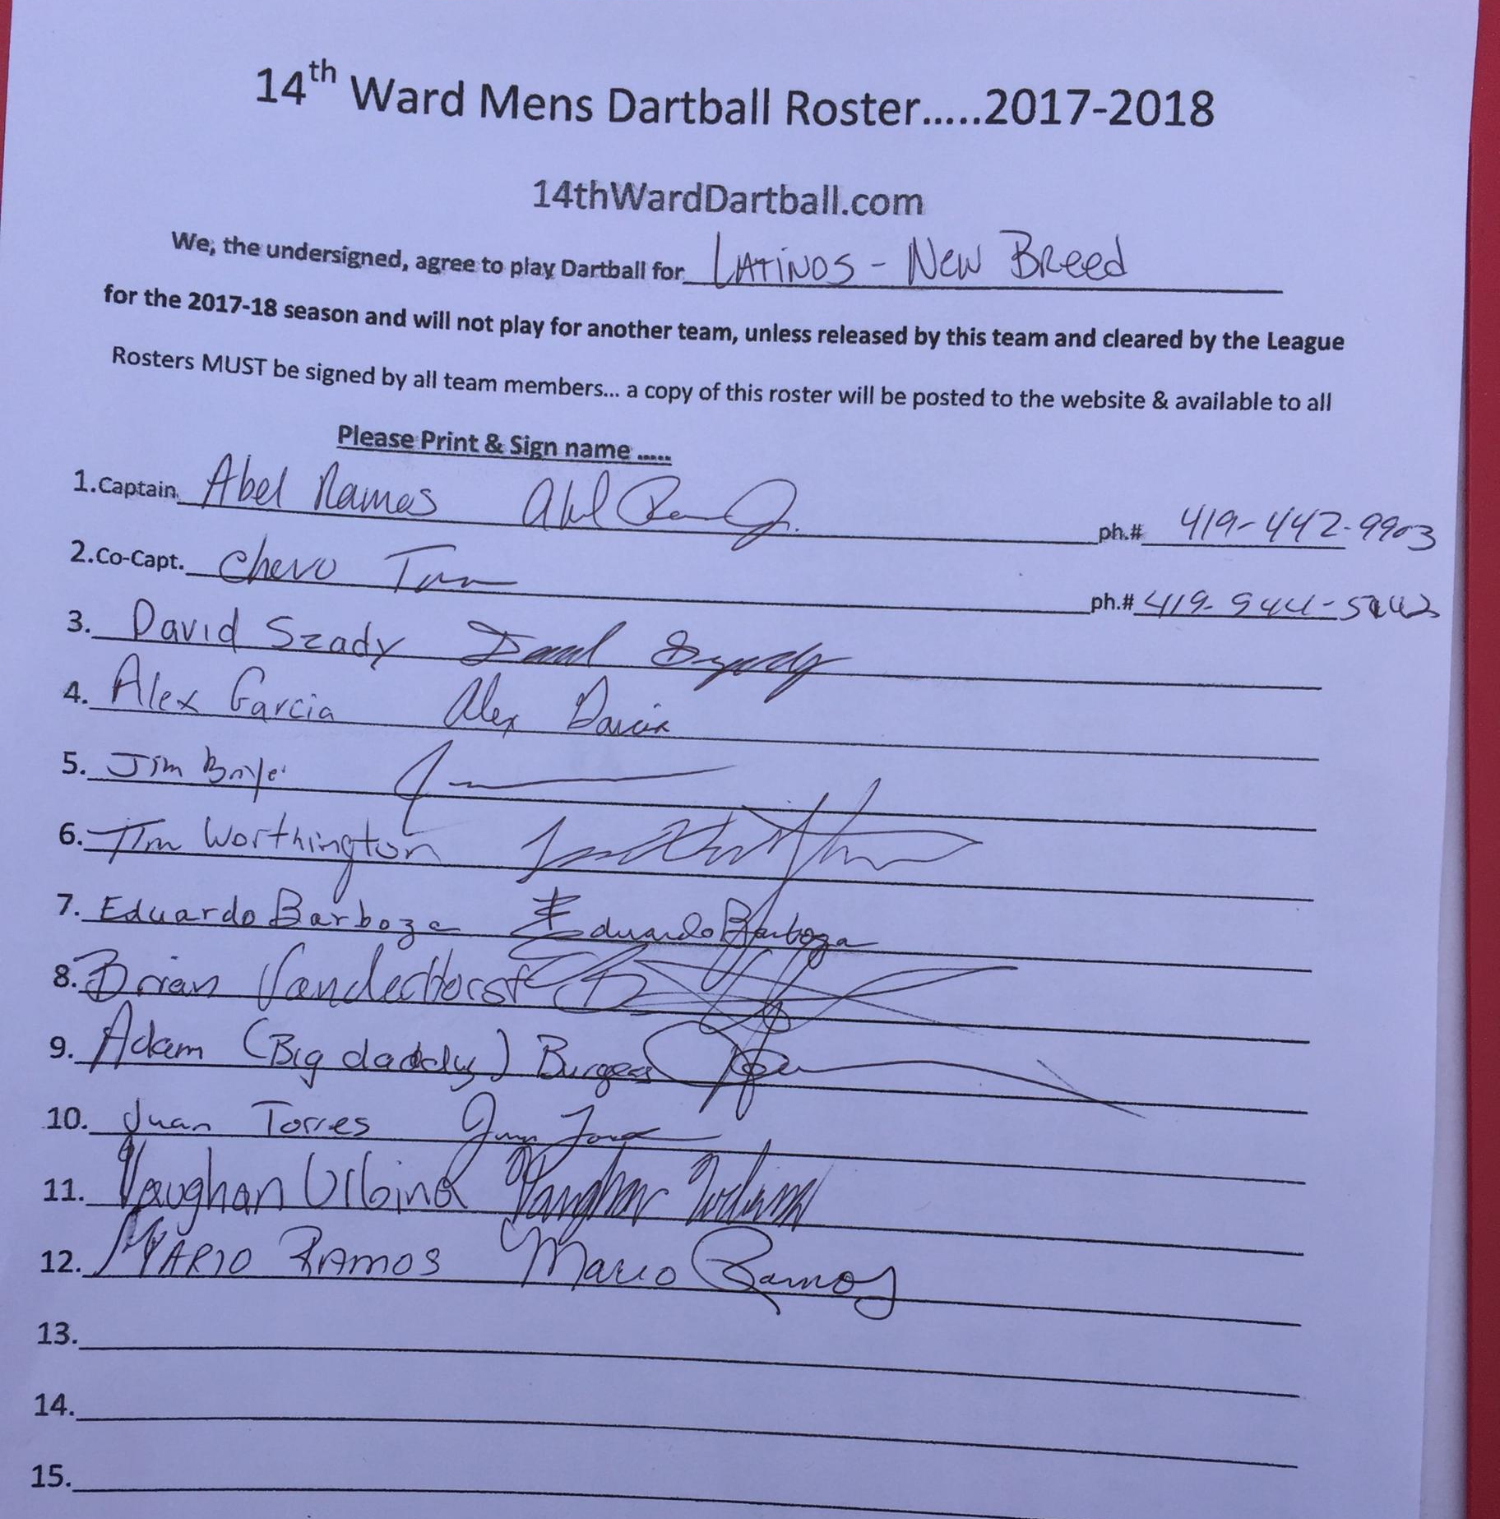 14th Ward Mens Dartball Roster.....2017-2018
14thWardDartball.com
We, the undersigned, agree to play Dartball for LATINOS - NEW BREED
for the 2017-18 season and will not play for another team, unless released by this team and cleared by the League
Rosters MUST be signed by all team members... a copy of this roster will be posted to the website & available to all
Please Print & Sign name .....
1.Captain Abel Ramos Abel Ramos Jr. ph.# 419-442-9903
2.Co-Capt. Chevo ph.# 419-
3. David Szady David Szady
4. Alex Garcia Alex Garcia
5. Jim
6. Tim Worthington
7. Eduardo Barboza Eduardo Barboza
8. Brian VanderHorst
9. Adam (Big daddy) Burgess
10. Juan Torres Juan Torres
11. Vaughan Urbina Vaughan Urbina
12. MARIO RAMOS Mario Ramos
13.
14.
15.